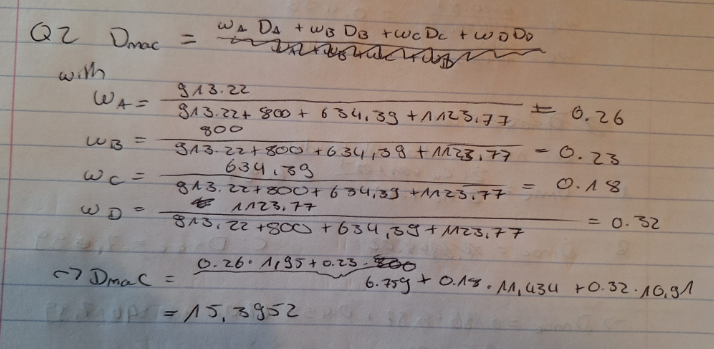 Q2 Dmac = wA DA + wB DB + wC DC + wD DD
with
wA = 913.22 / 913.22 + 800 + 634,39 + 1123,77 = 0.26
wB = 800 / 913.22 + 800 + 634,39 + 1123,77 = 0.23
wC = 634,39 / 913.22 + 800 + 634,39 + 1123,77 = 0.18
wD = 1123,77 / 913,22 + 800 + 634,39 + 1123,77 = 0.32
↪ Dmac = 0.26 · 1,95 + 0.23 · 6.759 + 0.18 · 11,434 + 0.32 · 10,91
= 15,3952